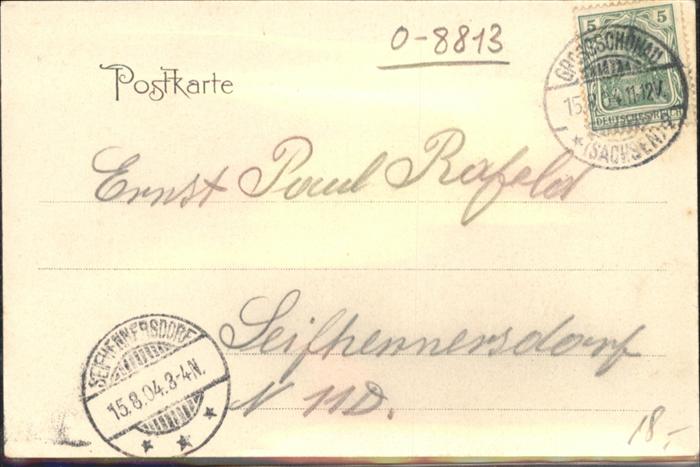 0-8813
5 5
DEUTSCHES REICH
GROSSSCHÖNAU
15.8.04.11-12V.
* (SACHSEN)
Postkarte
Ernst Paul Rafeld
Seifhennersdorf
N 11D.
SEIFHENNERSDORF
15.8.04.3-4N.
* * *
18,-